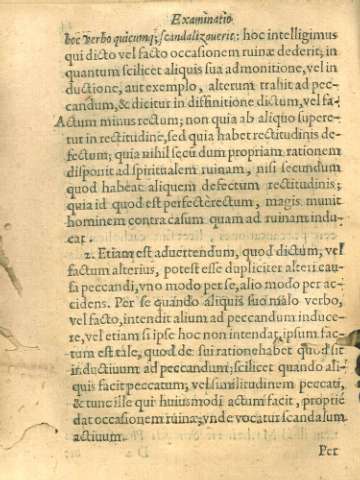 Examinatio
hoc verbo quicumq; scandalizauerit: hoc intelligimus
qui dicto vel facto occasionem ruinæ dederit; in
quantum scilicet aliquis sua admonitione, vel in
ductione, aut exemplo, alterum trahit ad pec-
candum, & dicitur in diffinitione dictum, vel fa-
Actum minus rectum; non quia ab aliquo supere-
tur in rectitudine, sed quia habet rectitudinis de-
fectum; quia nihil secũ dum propriam rationem
disponit ad spiritualem ruinam, nisi secundum
quod habeat aliquem defectum rectitudinis;
quia id quod est perfectè rectum, magis munit
hominem contra casum quam ad ruinam indu-
cat.
2. Etiam est aduertendum, quod dictum, vel
factum alterius, potest esse dupliciter alteri cau-
sa peccandi, vno modo per se, alio modo per ac-
cidens. Per se quando aliquis suo malo verbo,
vel facto, intendit alium ad peccandum induce-
re, vel etiam si ipse hoc non intendat, ipsum fac-
tum est tale, quod de sui ratione habet quod sit
inductiuum ad peccandum; scilicet quando ali-
quis facit peccatum, vel similitudinem peccati,
& tunc ille qui huiusmodi actum facit, propriè
dat occasionem ruinæ; vnde vocatur scandalum
actiuum.
Per